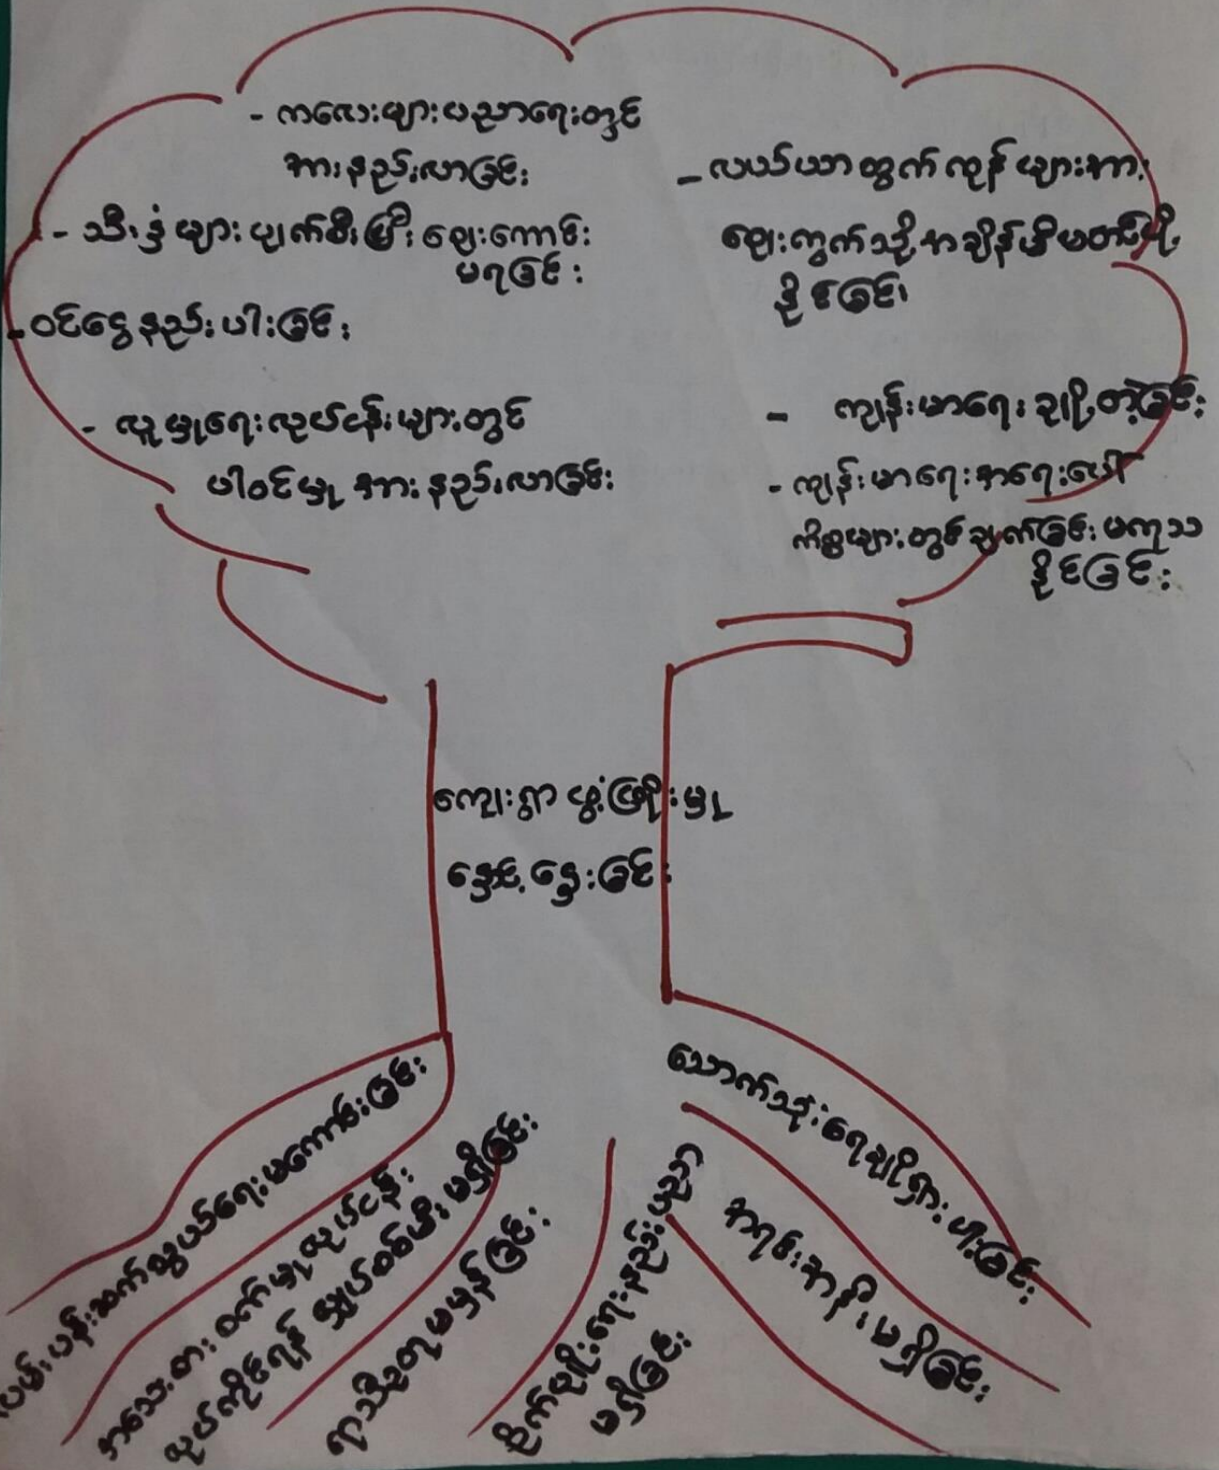 - ကလေးများပညာရေးတွင်
အားနည်းလာခြင်း
- သီးနှံများပျက်စီးပြီး ဈေးကောင်း
မရခြင်း
- ဝင်ငွေနည်းပါးခြင်း
- လူမှုရေးလုပ်ငန်းများတွင်
ပါဝင်မှု အားနည်းလာခြင်း
- လယ်ယာထွက်ကုန်များအား
ဈေးကွက်သို့အချိန်မီမတင်ပို့
နိုင်ခြင်း
- ကျန်းမာရေးချို့တဲ့ခြင်း
- ကျန်းမာရေးအရေးပေါ်
ကိစ္စများတွင်ချက်ခြင်းမကုသ
နိုင်ခြင်း
ကျေးရွာ ဖွံ့ဖြိုးမှု
နှောင့်နှေးခြင်း
လမ်းပန်းဆက်သွယ်ရေးမကောင်းခြင်း
အသေးစား စက်မှုလုပ်ငန်း
လုပ်ကိုင်ရန် လျှပ်စစ်မီး မရှိခြင်း
ရာသီဥတုမမှန်ခြင်း
စိုက်ပျိုးရေးနည်းပညာ
မရှိခြင်း
အရင်းအနှီးမရှိခြင်း
သောက်သုံးရေချို့ရှားပါးခြင်း